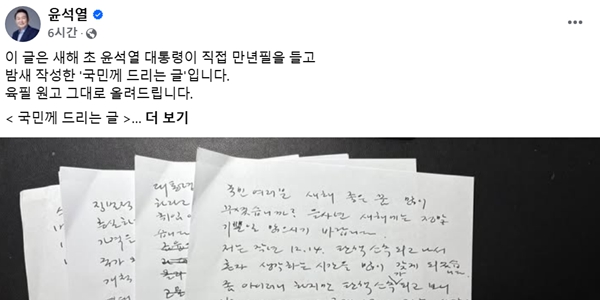 윤석열
6시간 ·
이 글은 새해 초 윤석열 대통령이 직접 만년필을 들고
밤새 작성한 '국민께 드리는 글'입니다.
육필 원고 그대로 올려드립니다.
< 국민께 드리는 글 >... 더 보기
국민 여러분 새해 좋은 꿈 많이
꾸셨습니까? 을사년 새해에는 정말
기쁜일 많으시기 바랍니다.
저는 작년 12.14. 탄핵소추되고 나서
혼자 생각하는 시간을 많이 갖게 되었습
좀 아이러니 하지만 탄핵소추되고 보니